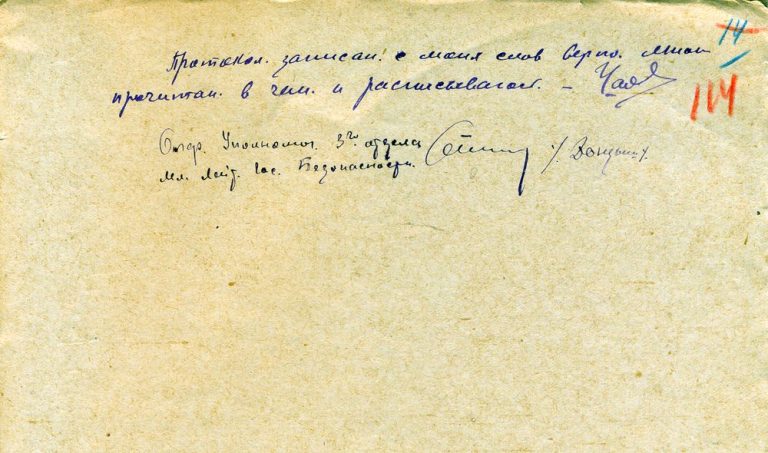 14
114
Протокол. записан. с моих слов верно. мною
прочитан. в чем. и расписываюсь. –
Опер. Уполномоч. 3го отдела
мл. Лейт. Гос. Безопасности.